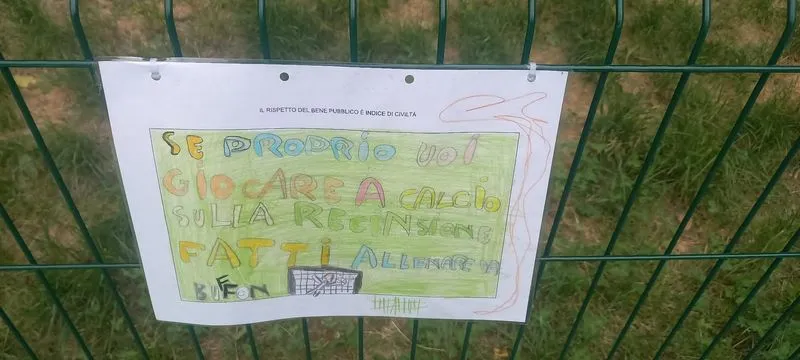 IL RISPETTO DEL BENE PUBBLICO È INDICE DI CIVILTÀ
SE PROPRIO UOI
GIOCARE A CALCIO
SULLA RECINSIONE
FATTI ALLENARE DA
BUFFON